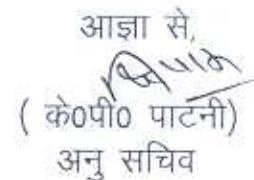 आज्ञा से,
( के0पी0 पाटनी)
अनु सचिव